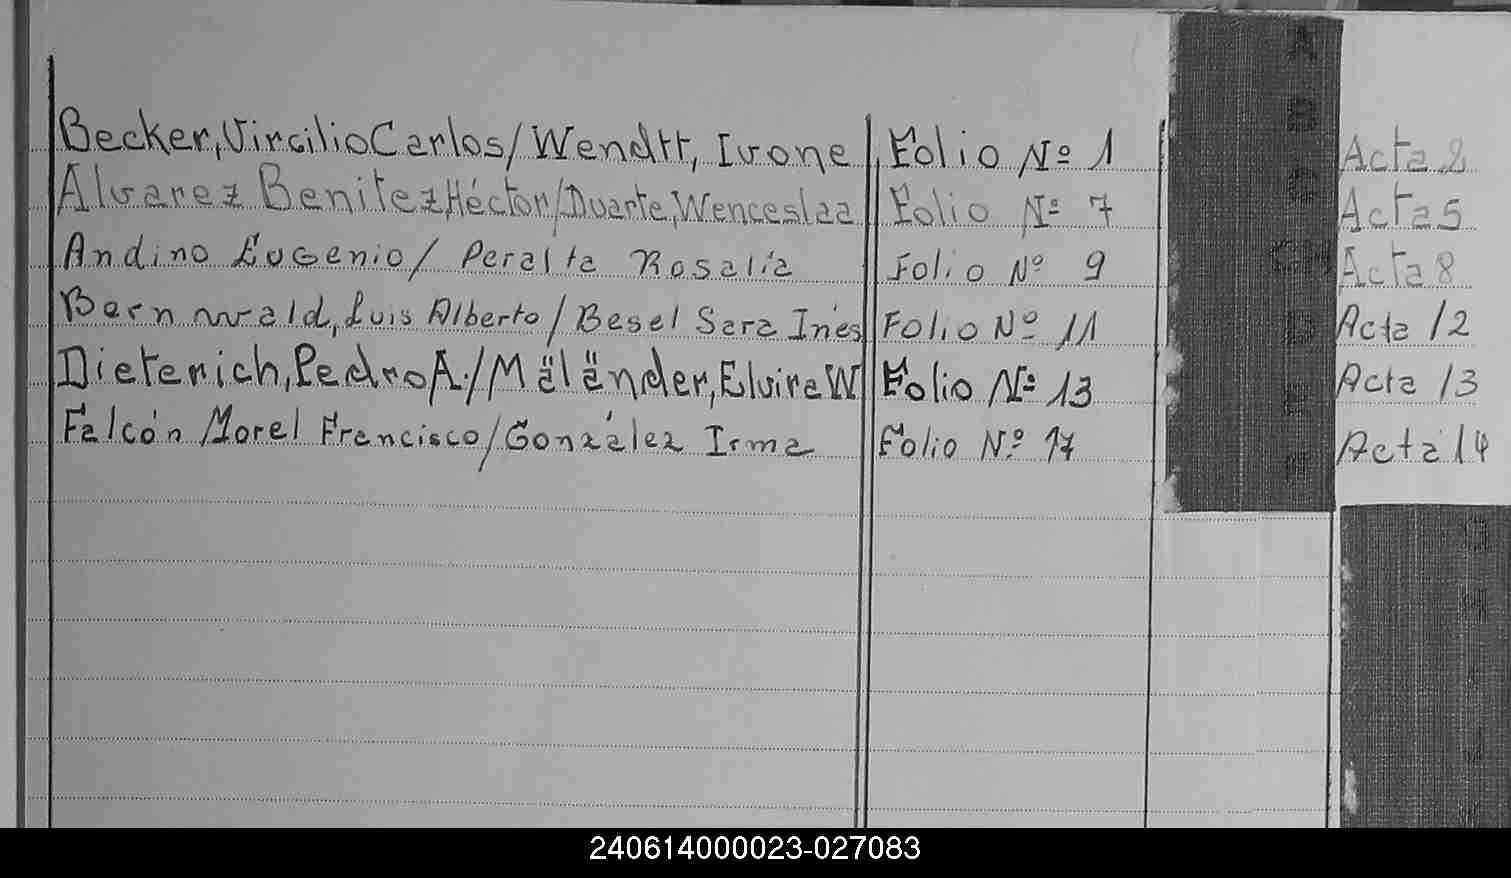 Becker, Vircilio Carlos/Wendtt, Ivone Folio Nº 1 Acta 2
Alvarez Benitez, Héctor/Duarte, Wenceslaa Folio Nº 7 Acta 5
Andino Eugenio/ Peralta Rosalía Folio Nº 9 Acta 8
Bernwald, Luis Alberto/ Besel Sara Inés Folio Nº 11 Acta 12
Dieterich, Pedro A./Mäländer, Elvira W Folio Nº 13 Acta 13
Falcón Morel Francisco/González Irma Folio Nº 17 Acta 14
A
B
C
CH
D
E
F
240614000023-027083